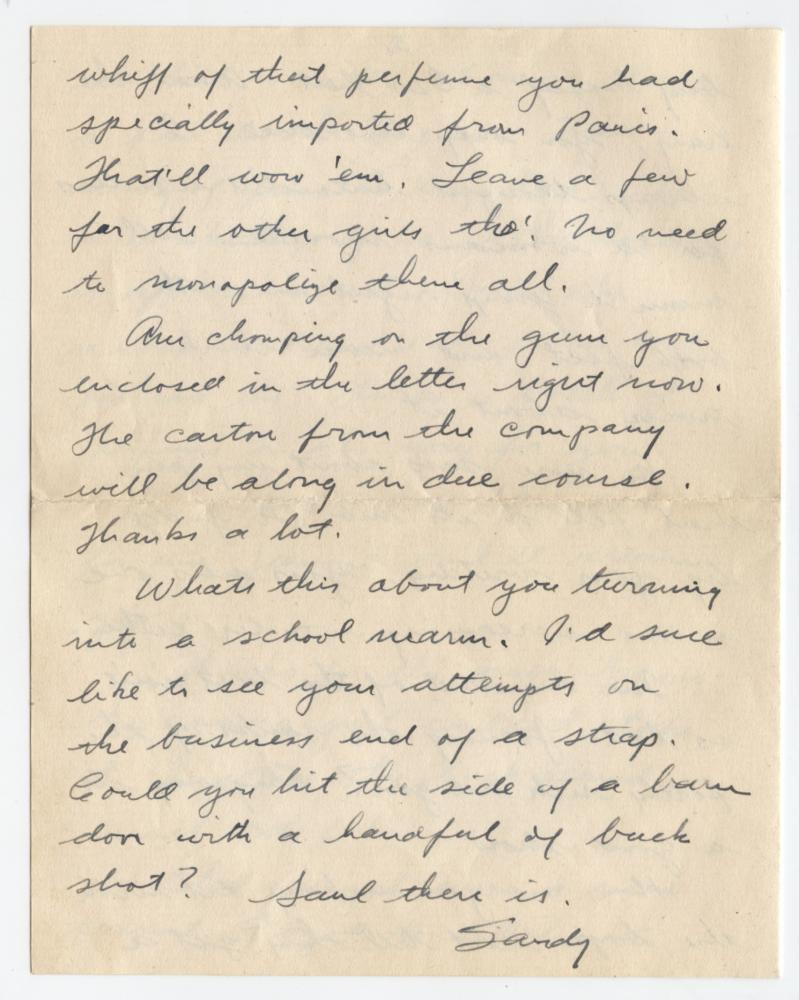 whiff of that perfume you had
specially imported from Paris.
That'll wow 'em. Leave a few
for the other girls tho'. No need
to monopolize them all.
Am chomping on the gum you
enclosed in the letter right now.
The carton from the company
will be along in due course.
Thanks a lot.
Whats this about you turning
into a school marm. I'd sure
like to see your attempts on
the business end of a strap.
Could you hit the side of a barn
door with a handful of buck
shot? that there is.
Sandy